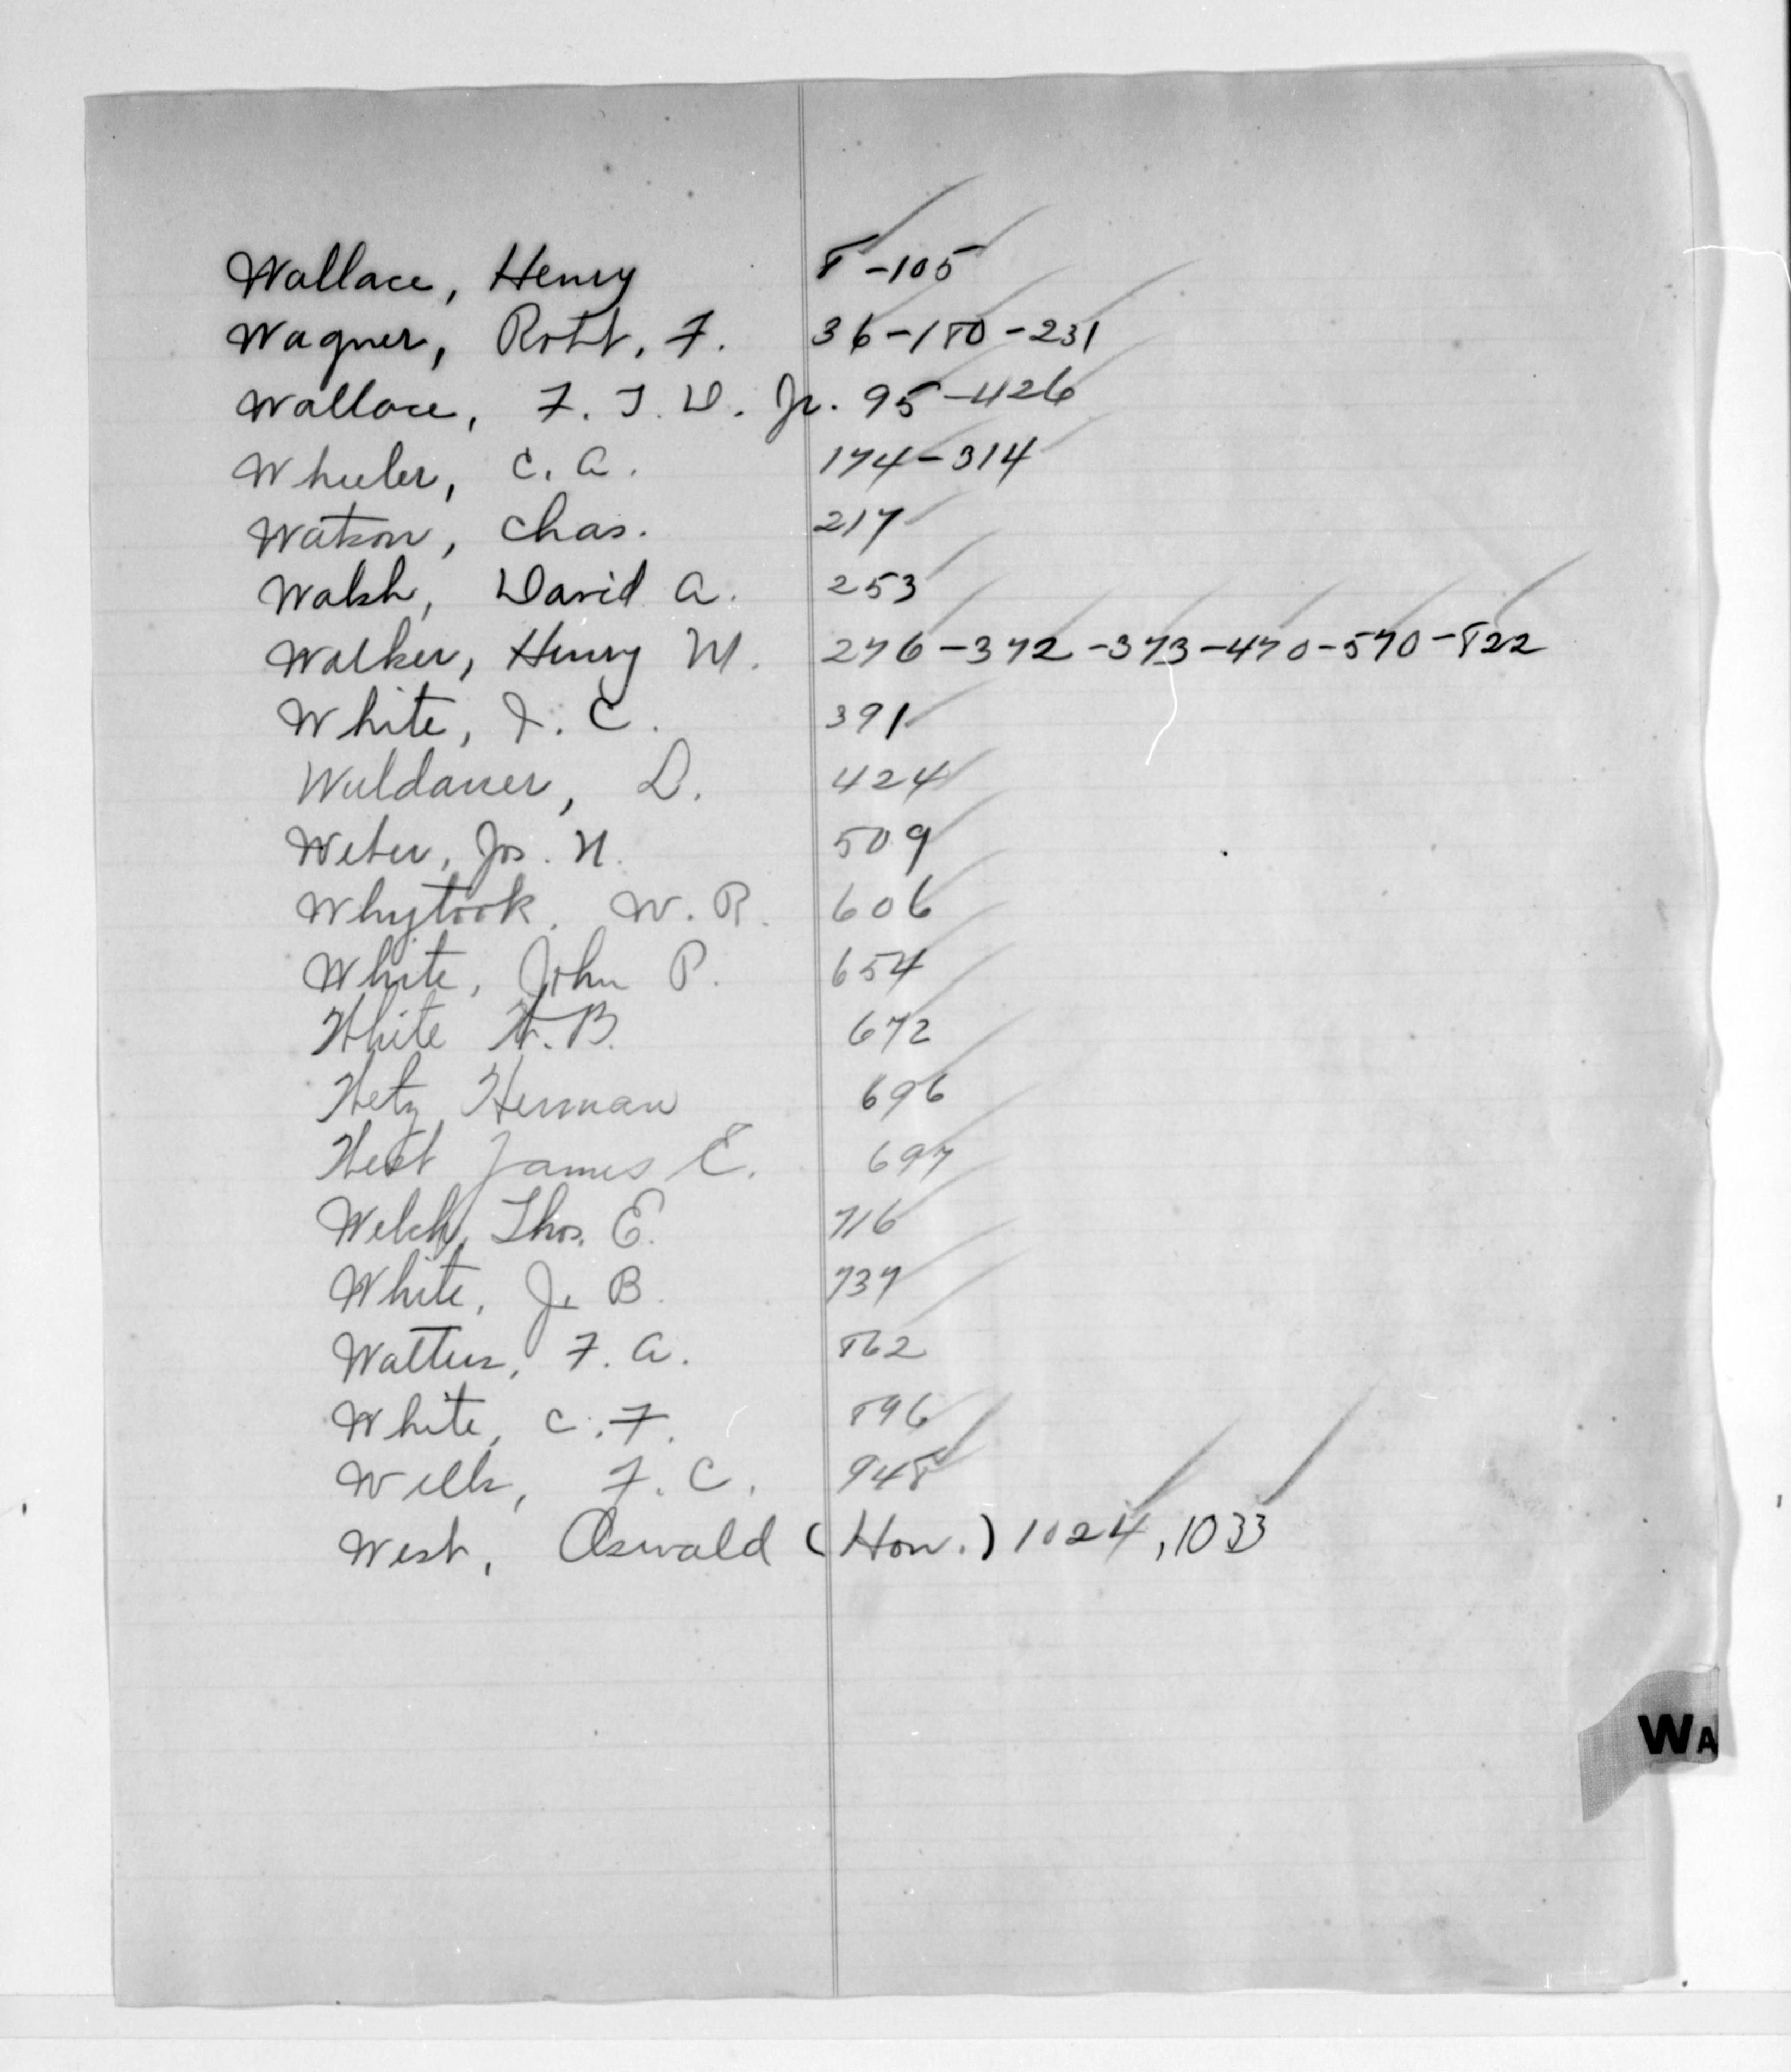 Wallace, Henry 8-105
Wagner, Robt. F. 36-180-231
Wallace, F. T. D. Jr. 95-426
Wheeler, C. A. 174-314
Watson, Chas. 217
Walsh, David A. 253
Walker, Henry M. 276-372-373-470-570-822
White, I. C. 391
Waldauer, D. 424
Weber, Jos. N. 509
Whytock, W. R. 606
White, John P. 654
White W. B. 672
Wetz Herman 696
West James E. 697
Welch, Thos. E. 716
White, J. B. 737
Watters, F. A. 862
White, C. F. 896
Wells, F. C. 948
West, Oswald (Hon.) 1024, 1033
WA